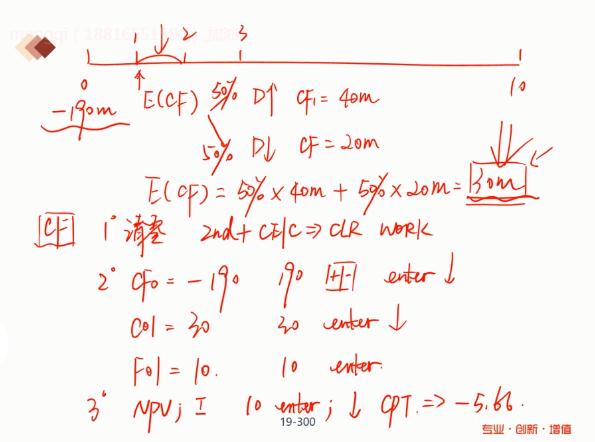 1 2 3 1
0 10
-190m E(CF) 50% D↑ CF₁ = 40m
50% D↓ CF = 20m
E(CF) = 50% × 40m + 50% × 20m = 30m
CF 1° 清零 2nd + CE/C ⇒ CLR WORK
2° CF0 = -190 190 +/- enter ↓
C01 = 30 30 enter ↓
F01 = 10. 10 enter.
3° NPV; I 10 enter; ↓ CPT. => -5.66.
19-300
专业·创新·增值